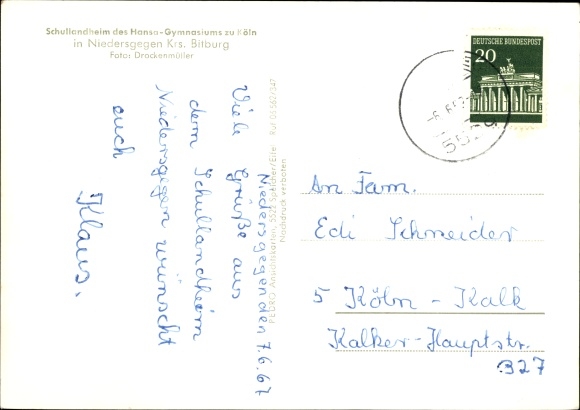 Schullandheim des Hansa-Gymnasiums zu Köln
in Niedersgegen Krs. Bitburg
Foto: Drockenmüller
Niedersgegen den 7.6.67
Viele Grüße aus
dem Schullandheim
Niedersgegen wünscht
euch
Klaus.
PEDRO Ansichtskarten, 5522 Speicher/Eifel Ruf 06562/347
Nachdruck verboten
DEUTSCHE BUNDESPOST
20
5529
An Fam.
Edi Schneider
5 Köln - Kalk
Kalker-Hauptstr.
327